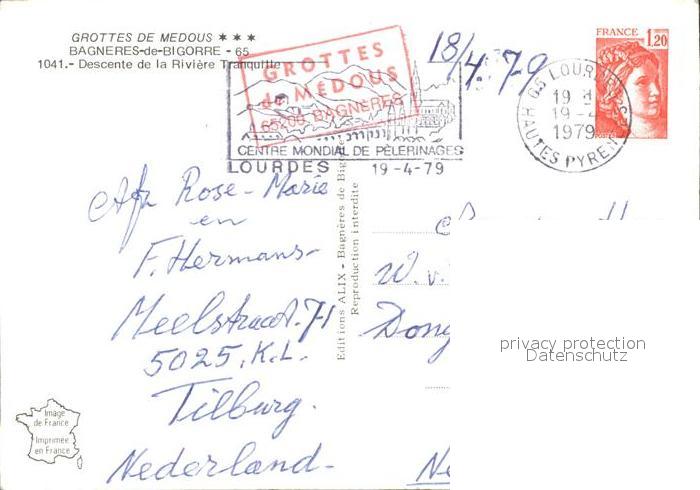 GROTTES DE MEDOUS ★ ★ ★
BAGNERES-de-BIGORRE - 65
1041.- Descente de la Rivière Tranquille
GROTTES
de MÉDOUS
65200 BAGNÈRES
CENTRE MONDIAL DE PÈLERINAGES
LOURDES 19-4-79
18/4.79
65 LOURDES
19 H
19 - 4
1979
HAUTES PYREN
FRANCE 1,20
Rose-Marie
en
F. Hermans-
Meelstraat. 71
5025. K.L.
Tilburg.
Nederland-
Editions ALIX - Bagnères de Bigorre
Reproduction interdite
W. v.
Dong
Ne
privacy protection
Datenschutz
Image
de France
Imprimée
en France